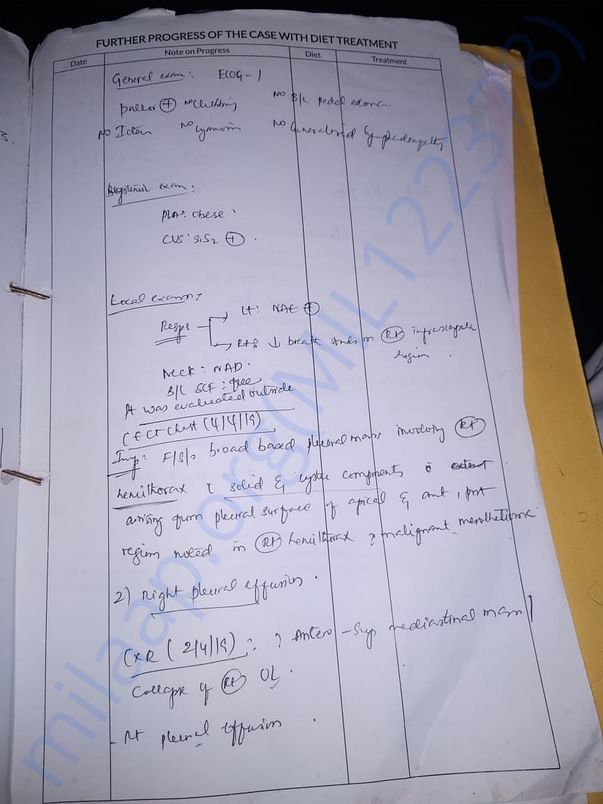 FURTHER PROGRESS OF THE CASE WITH DIET TREATMENT
Date Note on Progress Diet Treatment
General exam: ECOG-1
pallor + No clubbing No B/L pedal edema
No Icterus No cyanosis No Generalised lymphadenopathy
Systemic exam:
P/A: obese
CVS: S1S2 +
Local exam:
Resp: Lt: NAE +
Rt: ↓ breath sounds in Rt infrascapular region
Neck: NAD.
B/L SCF: free
Pt was evaluated outside
CECT Chest (4/4/19)
Imp: F/S/o broad based pleural mass involving Rt
hemithorax c solid & cystic components c extent
arising from pleural surface of apical & ant, post
region noted in Rt hemithorax ? malignant mesothelioma
2) Right pleural effusion.
CXR (2/4/19): ? Antero-Sup mediastinal mass /
collapse of Rt UL.
- Rt pleural effusion.
milaap.org(MIL122378)